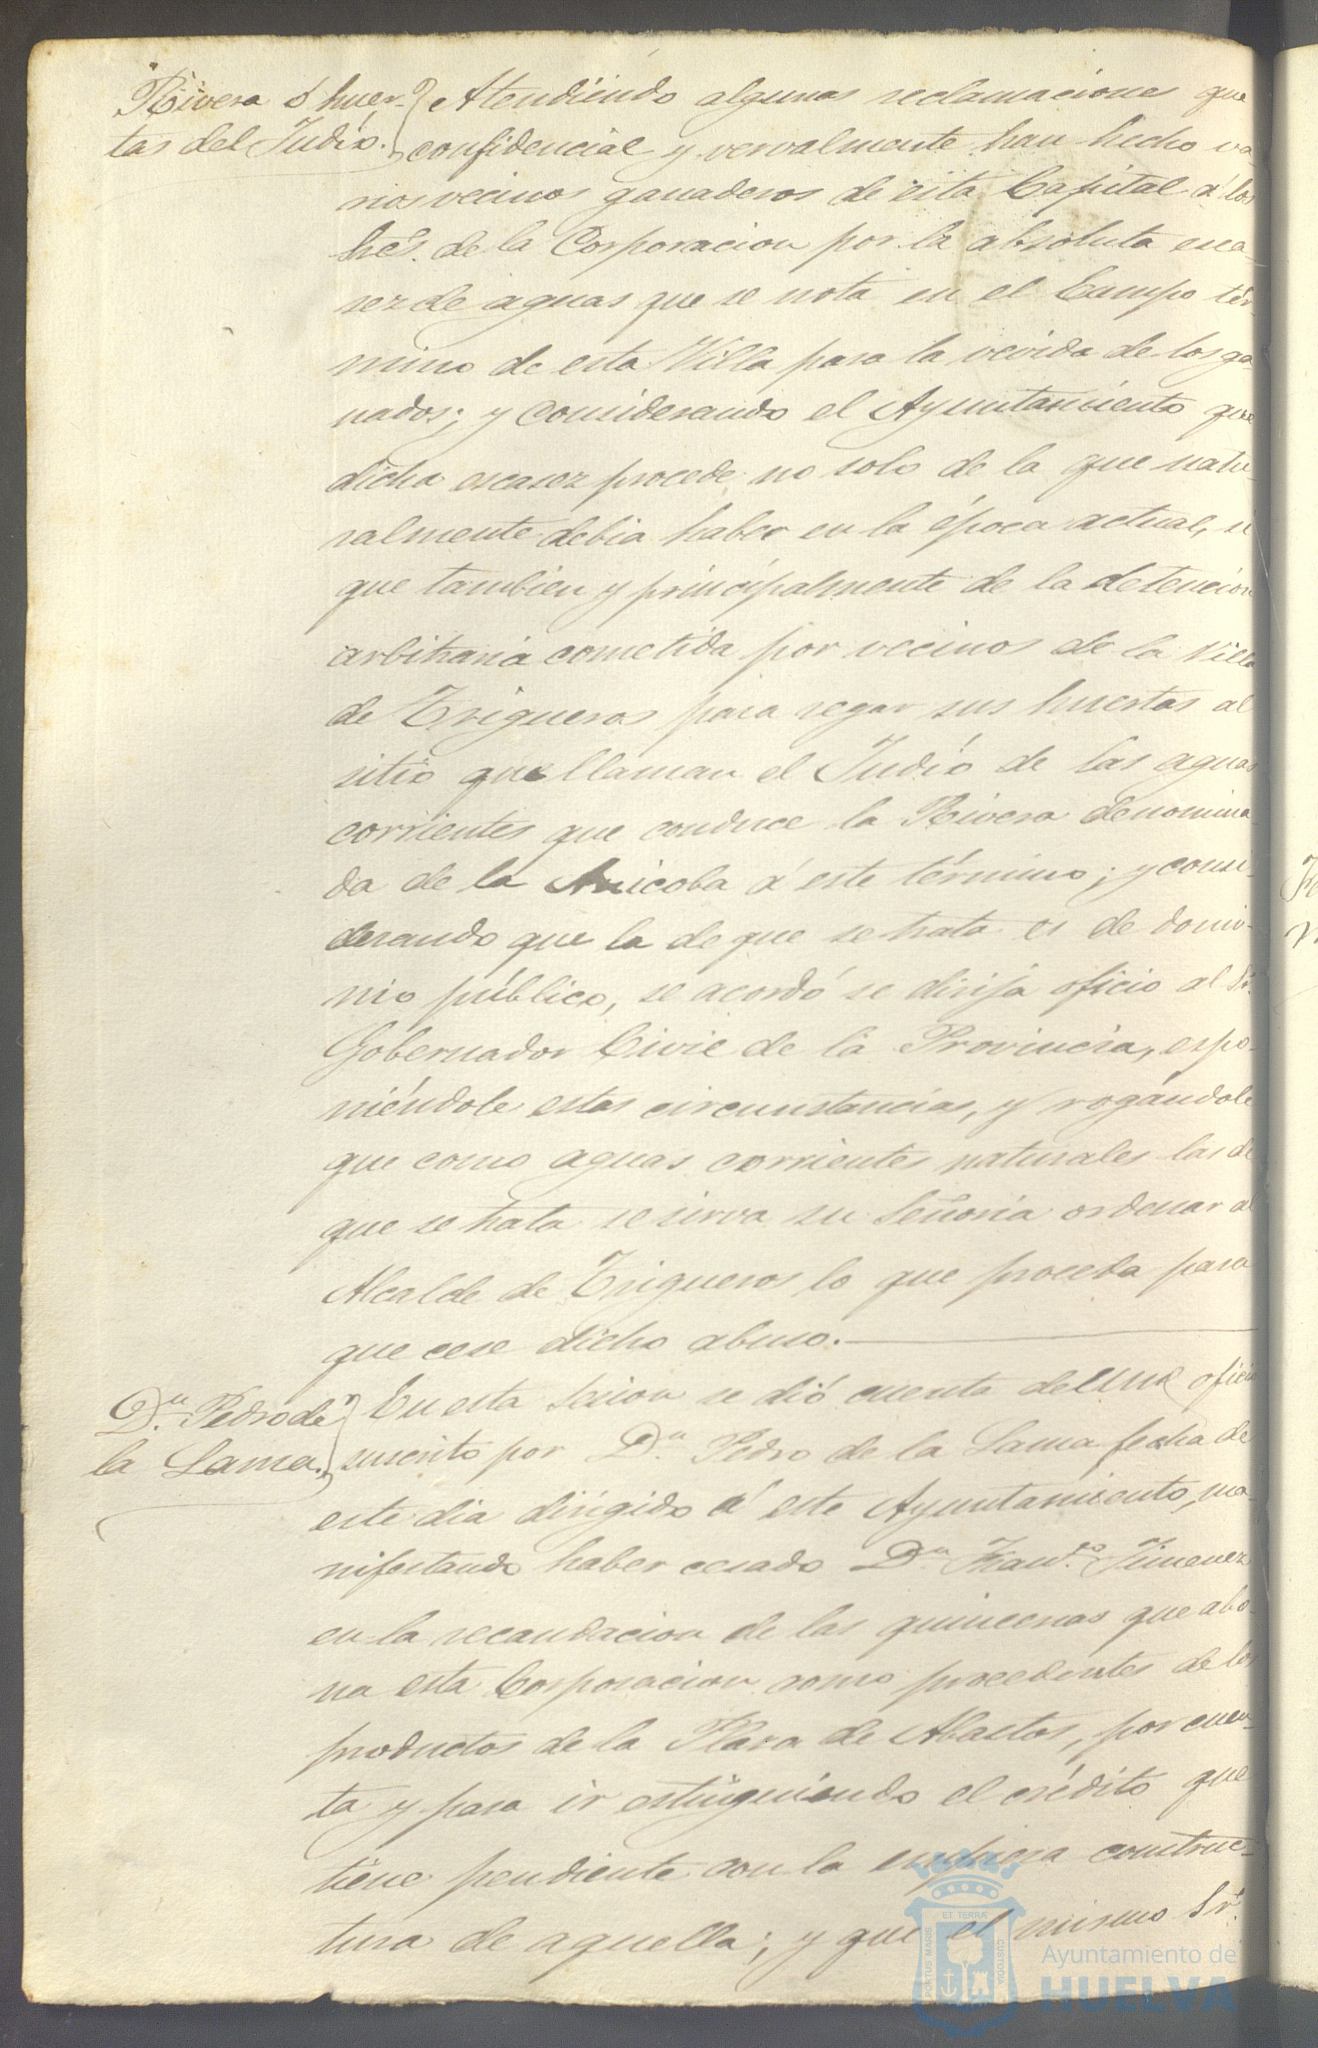 Rivera ó huer-
tas del Judío.
Atendiéndo algunas reclamaciones que
confidencial y vervalmente han hecho va-
rios vecinos ganaderos de esta Capital á los
Sres. de la Corporacion por la absoluta esca-
sez de aguas que se nota en el Campo tér-
mino de esta Villa para la vevida de los ga-
nados; y considerando el Ayuntamiento que
dicha escasez procede no solo de la que natu-
ralmente debia haber en la época actual, si
que tambien y principalmente de la detencion
arbitraria cometida por vecinos de la Villa
de Trigueros para regar sus huertas al
sitio que llaman el Judío de las aguas
corrientes que conduce la Rivera denomina-
da de la Anicoba á este término; y consi-
derando que la de que se trata es de domi-
nio público, se acordó se dirija oficio al Sr.
Gobernador Civil de la Provincia, espo-
niéndole estas circunstancias, y rogándole
que como aguas corrientes naturales las de
que se trata se sirva su Señoria ordenar al
Alcalde de Trigueros lo que proceda para
que cese dicho abuso.
Dn. Pedro de
la Lama.
En esta sesion se dió cuenta de una oficio
suscrito por Dn. Pedro de la Lama fecha de
este dia dirigido á este Ayuntamiento, ma-
nifestando haber cesado Dn. Franco. Jimenez
en la recaudacion de las quincenas que abo-
na esta Corporacion como procedentes de los
productos de la Plaza de Abastos, por cuen-
ta y para ir estinguiendo el crédito que
tiene pendiente con la empresa construc-
tura de aquella; y que el mismo Sr.
PORTUS MARIS
ET TERRÆ
CUSTODIA
Ayuntamiento de
HUELVA